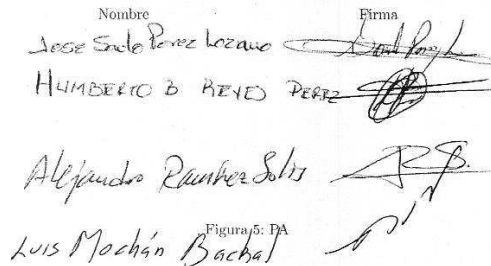 Nombre Firma
Jose Saulo Perez Lozano
HUMBERTO B REYES PEREZ
Alejandro Ramírez Solís
Figura 5: PA
Luis Mochán Backal